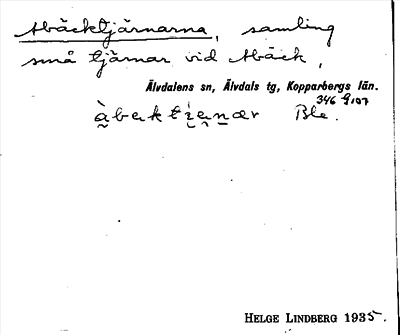 Abäcktjärnarna, samling
små tjärnar vid Abäck,
Älvdalens sn, Älvdals tg, Kopparbergs län.
346 g107
à̰bɐkti̯ɐ̯n̲ær Ble.
HELGE LINDBERG 1935.